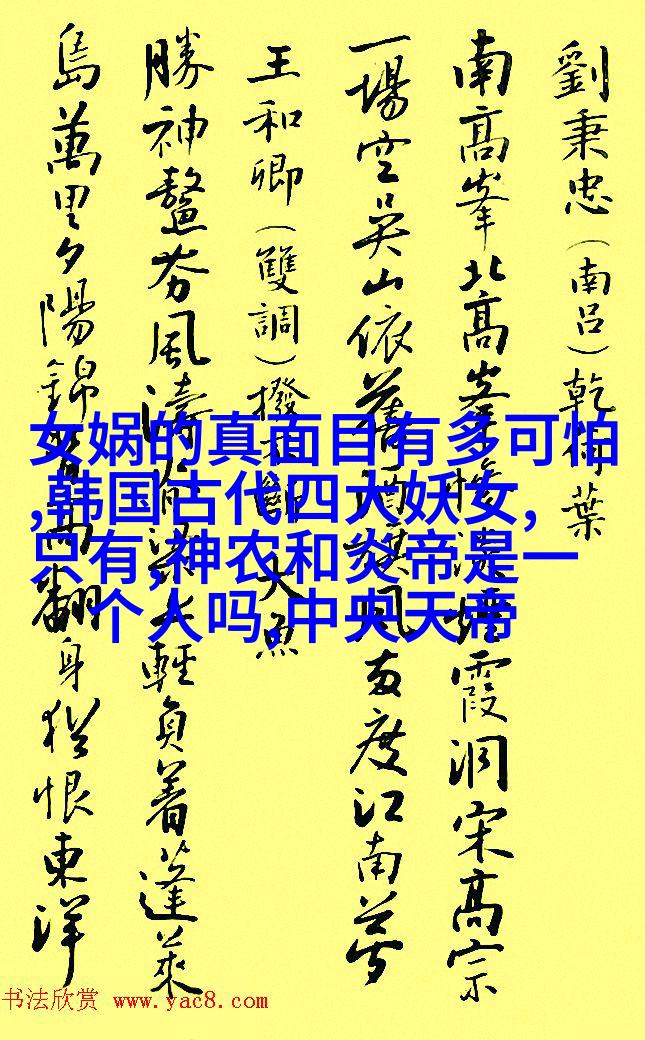 劉秉忠(南吕)乾荷葉
南高峯北高峯慘淡煙霞洞宋高宗
一場空吴山依舊酒旗風両度江南夢
王和卿(雙調)撥不斷 大魚
勝神鼇夯風濤脊梁上輕負着蓬萊
島萬里夕陽錦背高翻身猶恨東洋
女娲的真面目有多可怕
,韩国古代四大妖女,
只有,神农和炎帝是一
个人吗,中央天帝
书法欣赏 www.yac8.com